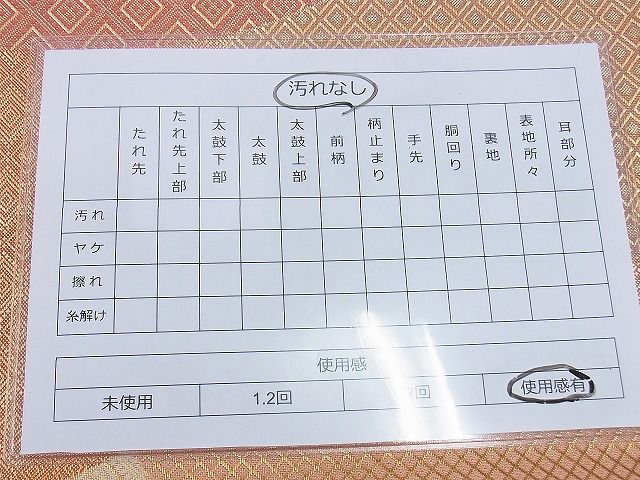 汚れなし
たれ先 たれ先上部 太鼓下部 太鼓 太鼓上部 前柄 柄止まり 手先 胴回り 裏地 表地所々 耳部分
汚れ
ヤケ
擦れ
糸解け
使用感
未使用 1.2回 回 使用感有